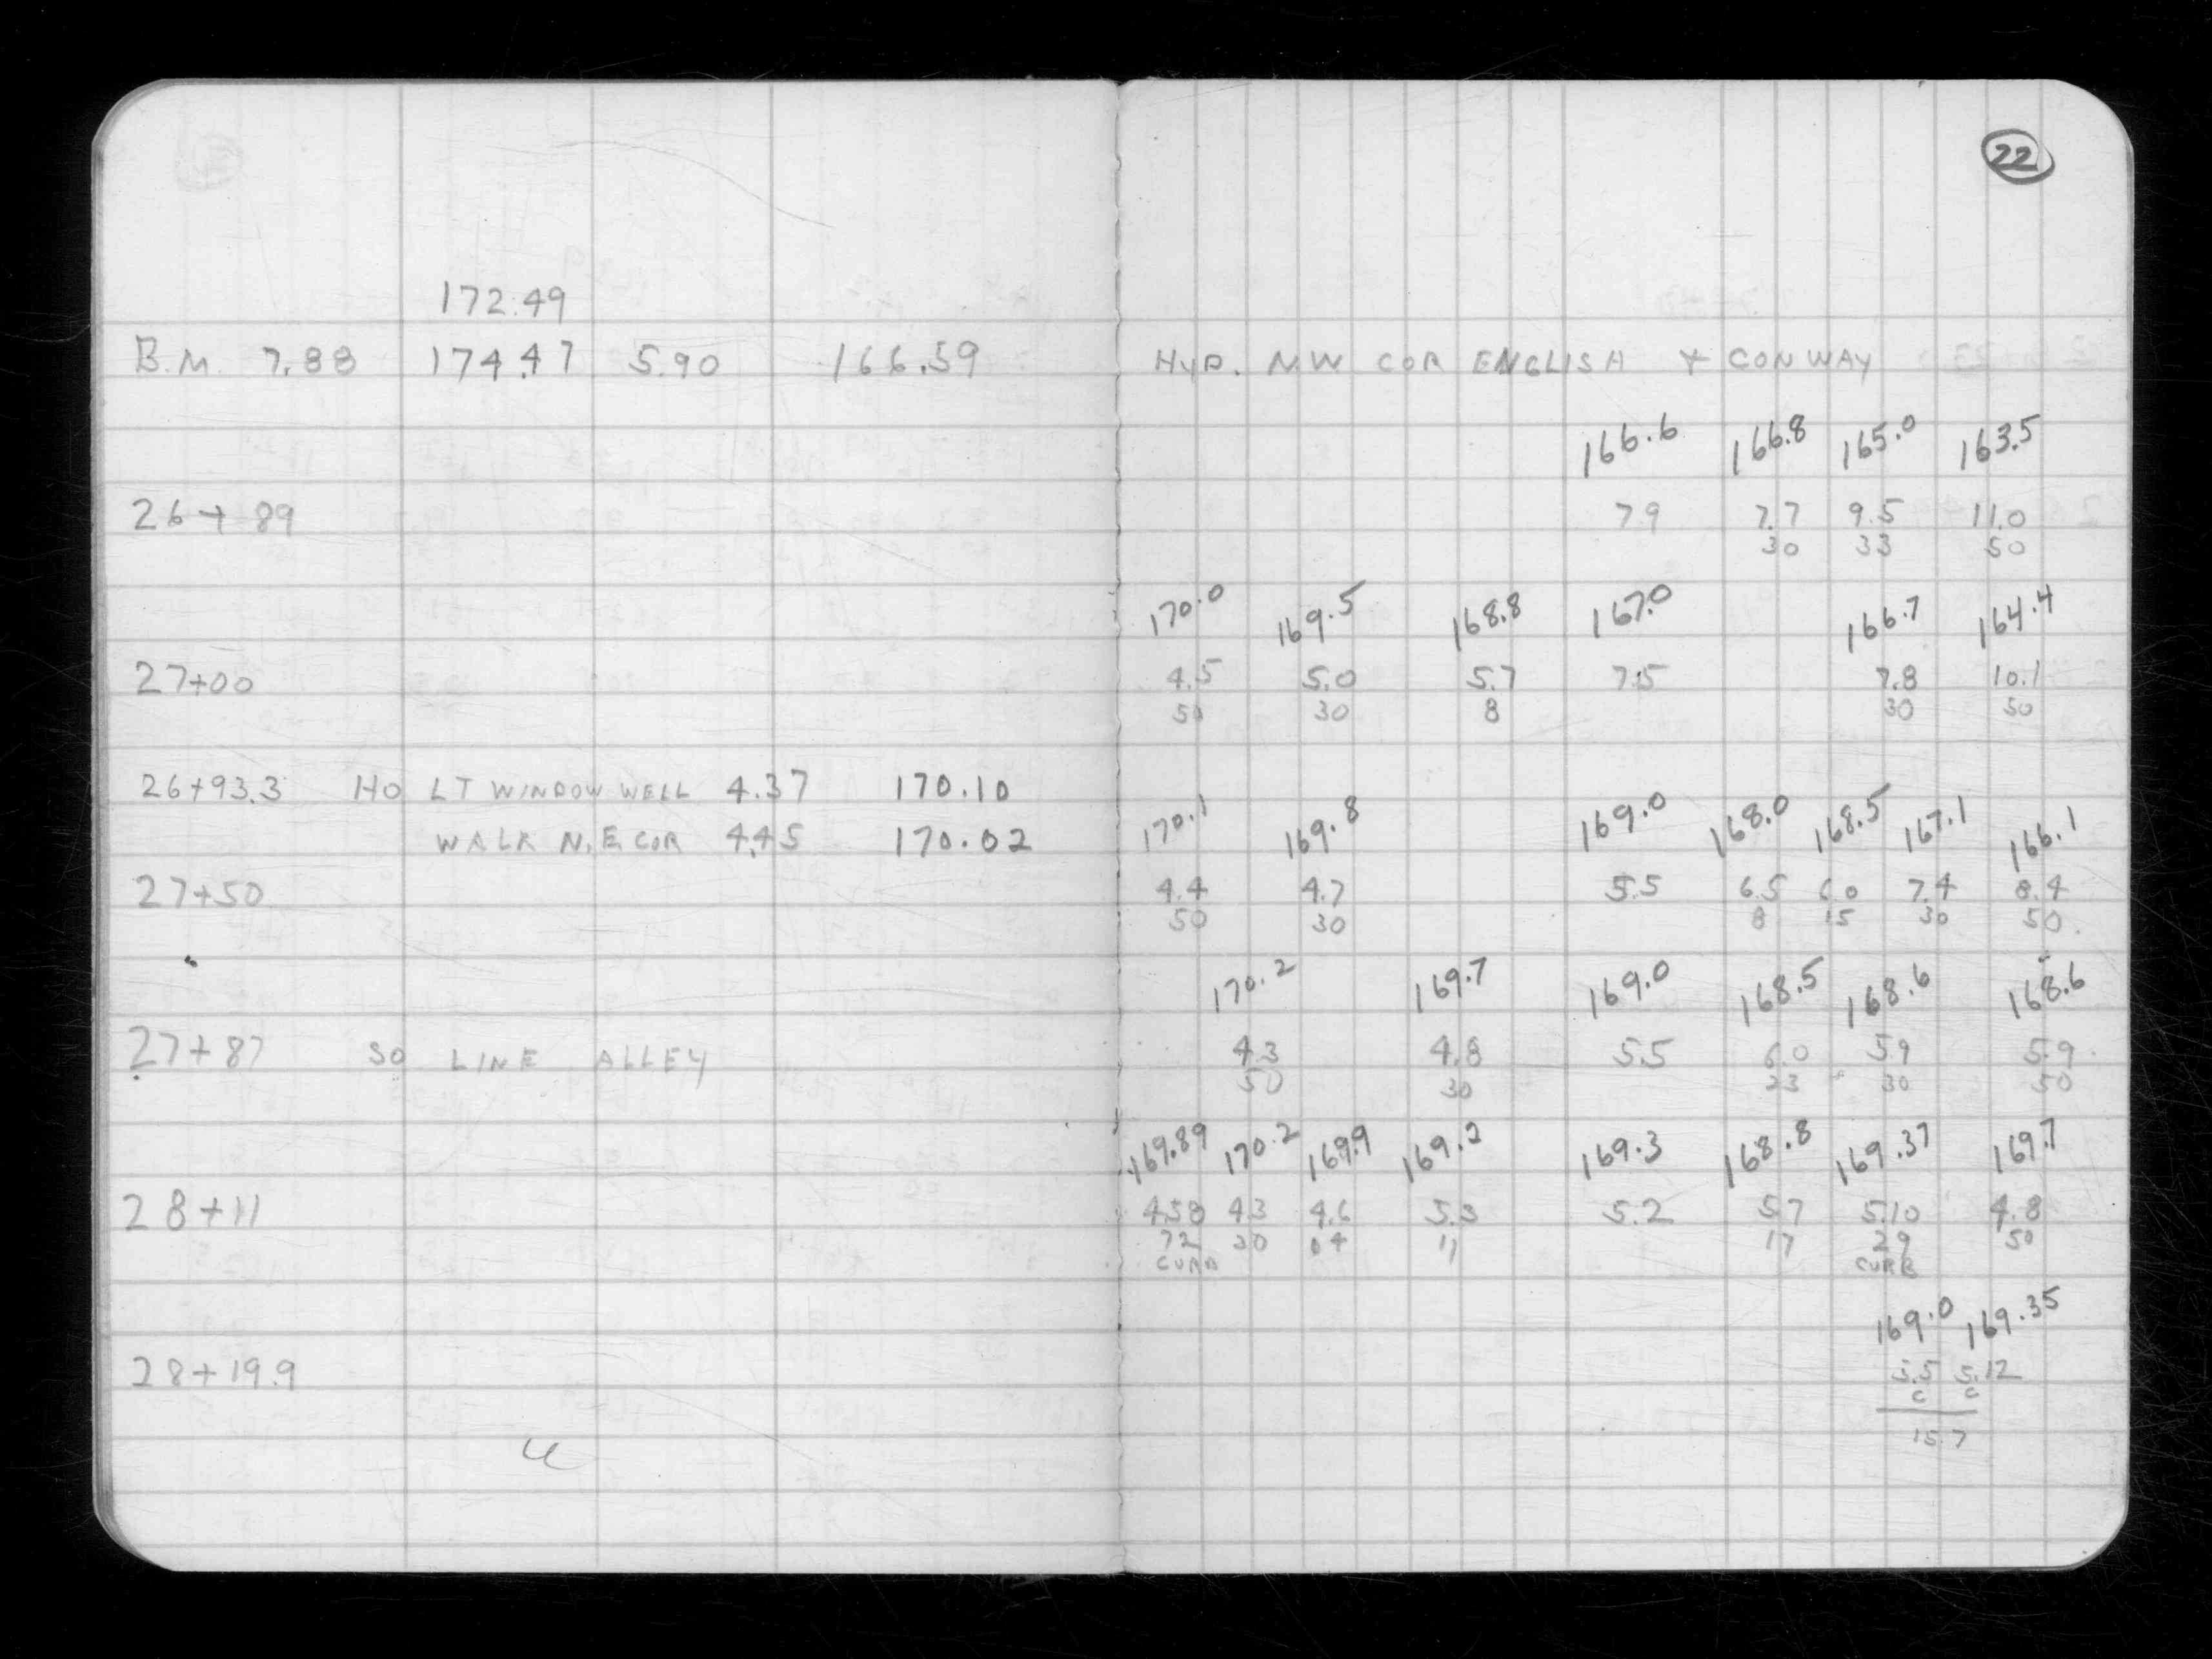 22
172.49
B.M. 7.88 174.47 5.90 166.59 HYD. NW COR ENGLISH + CONWAY
166.6 166.8 165.0 163.5
26+89 7.9 7.7 9.5 11.0
30 33 50
170.0 169.5 168.8 167.0 166.7 164.4
27+00 4.5 5.0 5.7 7.5 7.8 10.1
50 30 8 30 50
26+93.3 HO LT WINDOW WELL 4.37 170.10
170.1 169.8 169.0 168.0 168.5 167.1 166.1
WALK N.E. COR 4.45 170.02
27+50 4.4 4.7 5.5 6.5 6.0 7.4 8.4
50 30 8 15 30 50
170.2 169.7 169.0 168.5 168.6 168.6
27+87 SO LINE ALLEY 4.3 4.8 5.5 6.0 5.9 5.9
50 30 23 30 50
169.89 170.2 169.9 169.2 169.3 168.8 169.37 169.7
28+11 4.58 4.3 4.6 5.3 5.2 5.7 5.10 4.8
72 11 17 29 50
CURB CURB
169.0 169.35
28+19.9 5.5 5.12
C C
15.7